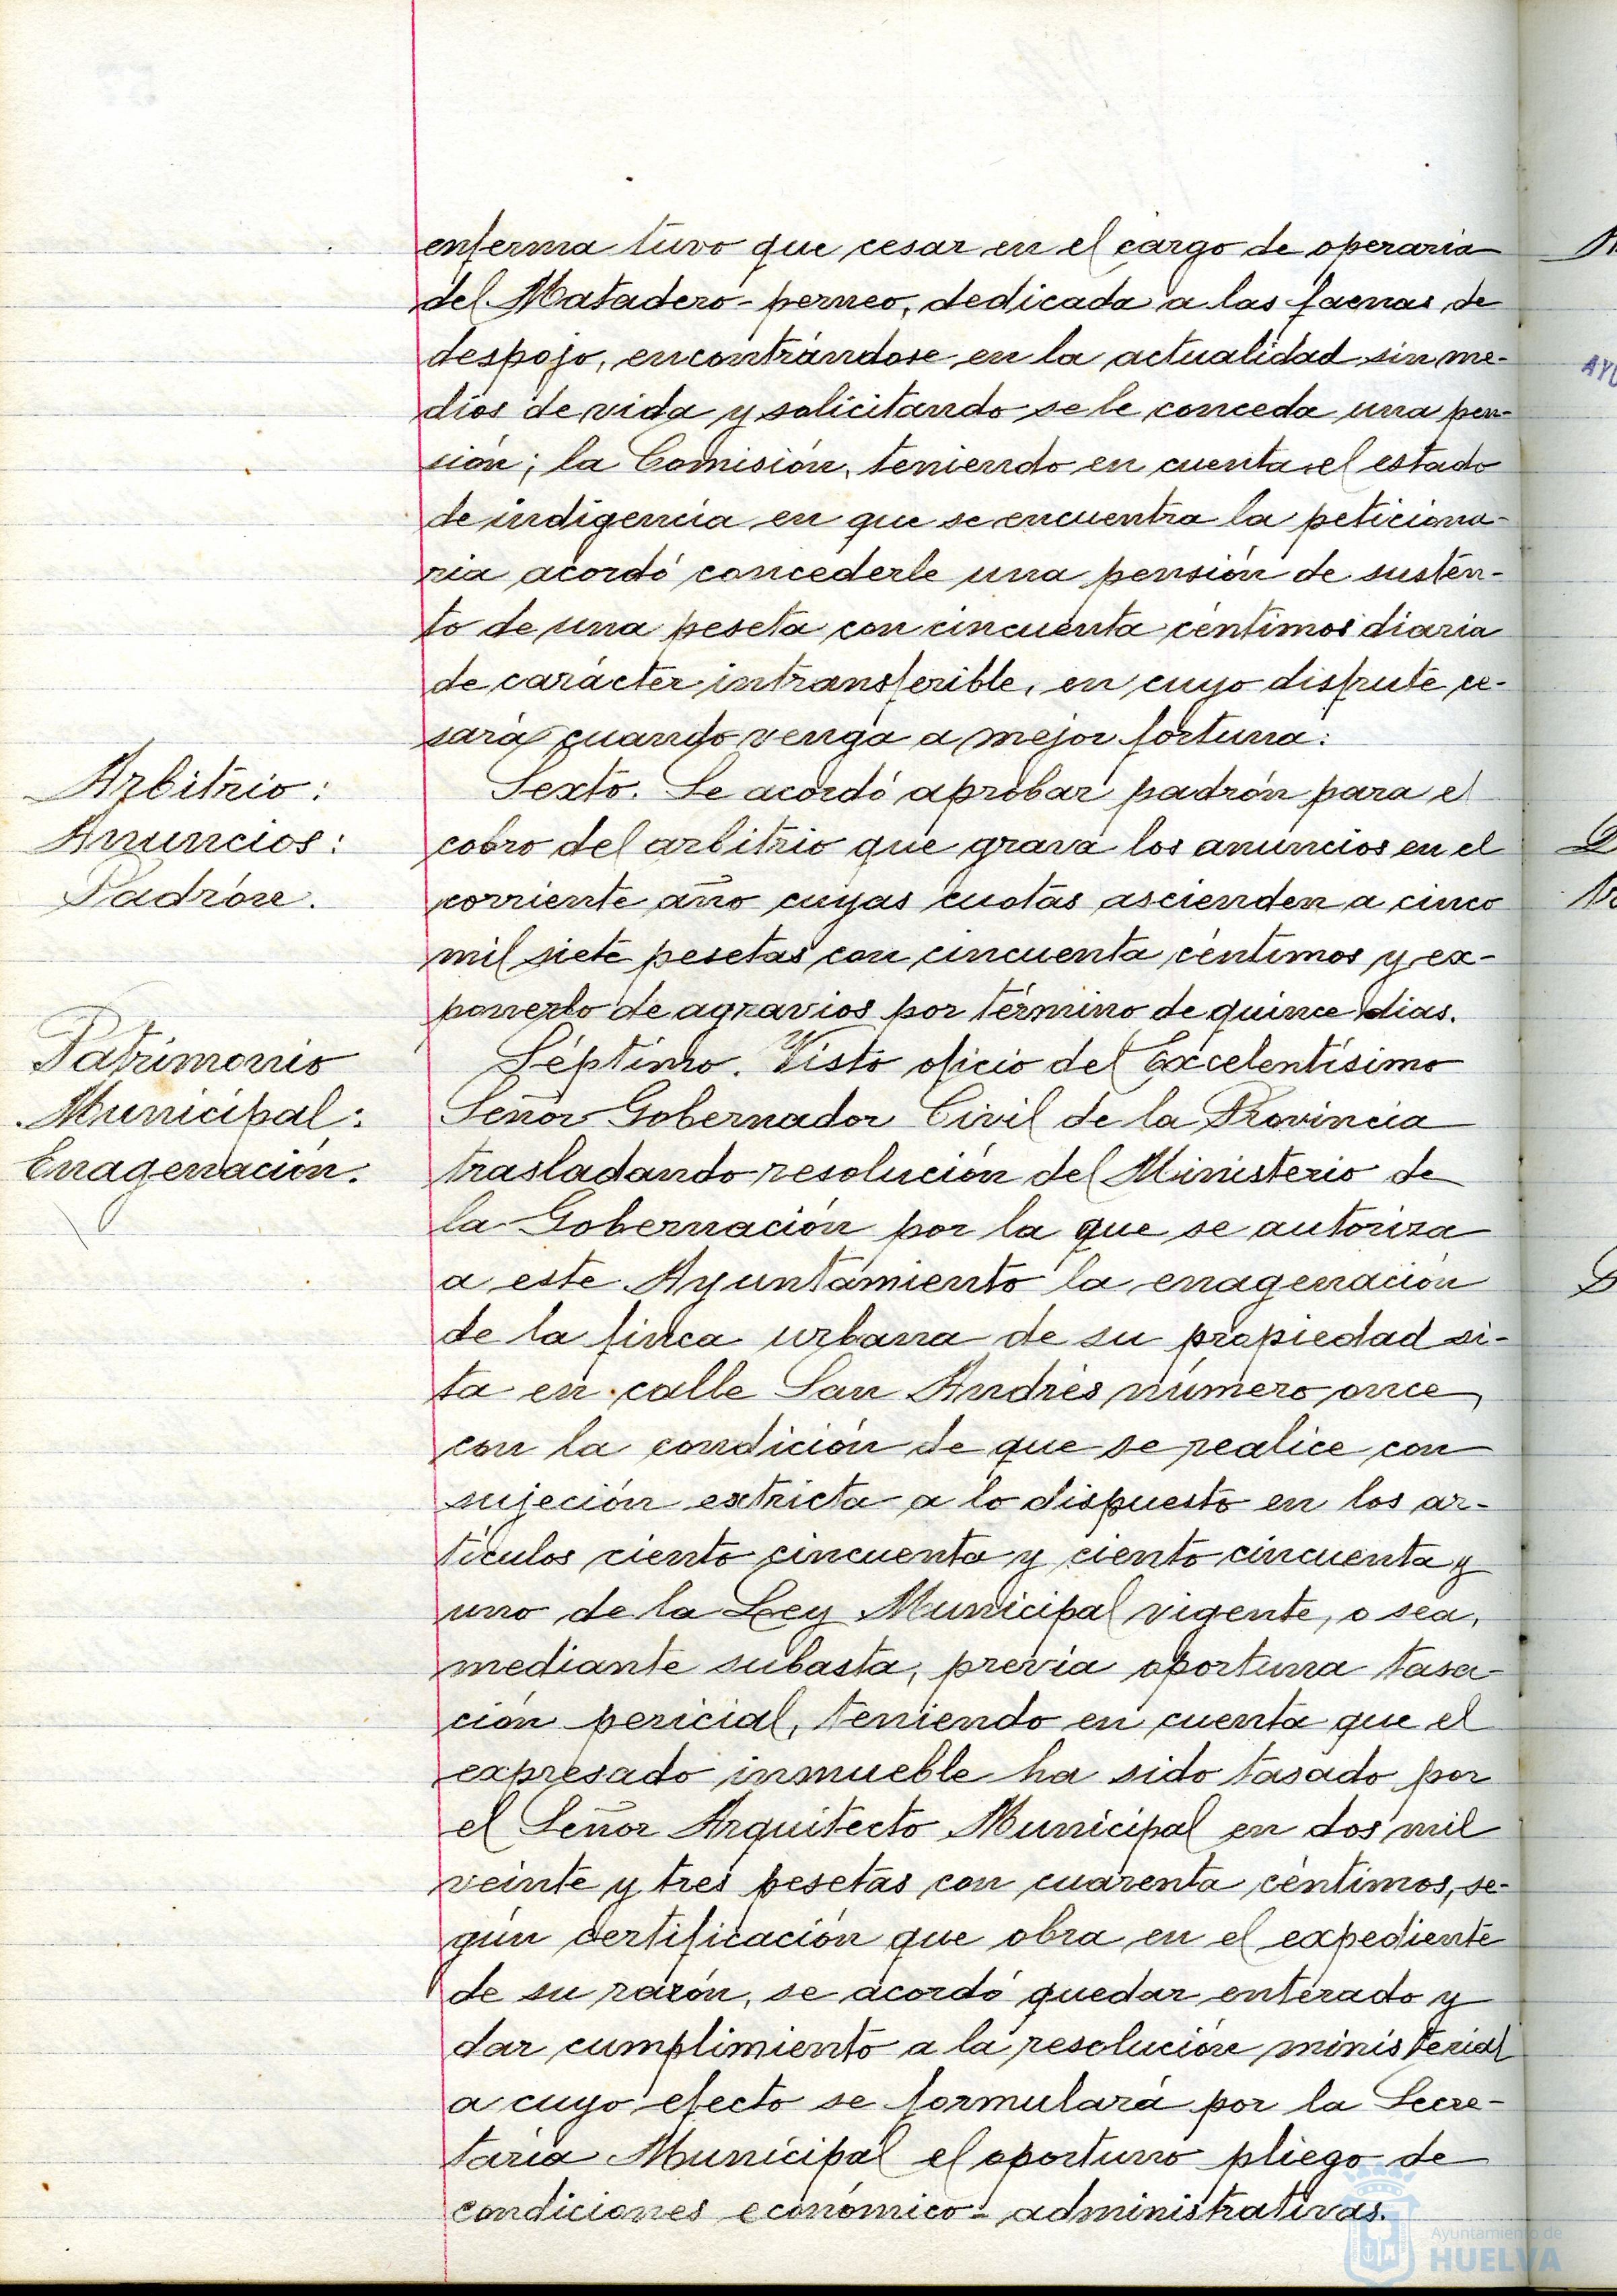 enferma tuvo que cesar en el cargo de operaria
del Matadero-perneo, dedicada a las faenas de
despojo, encontrándose en la actualidad sin me-
dios de vida y solicitando se le conceda una pen-
sión; la Comisión, teniendo en cuenta el estado
de indigencia en que se encuentra la peticiona-
ria acordó concederle una pensión de susten-
to de una peseta con cincuenta céntimos diaria
de carácter intransferible, en cuyo disfrute ce-
sará cuando venga a mejor fortuna.
Arbitrio:
Anuncios:
Padrón.
Sexto. Se acordó aprobar padrón para el
cobro del arbitrio que grava los anuncios en el
corriente año cuyas cuotas ascienden a cinco
mil siete pesetas con cincuenta céntimos y ex-
ponerlo de agravios por término de quince dias.
Patrimonio
Municipal:
Enagenación.
Séptimo. Visto oficio del Excelentísimo
Señor Gobernador Civil de la Provincia
trasladando resolución del Ministerio de
la Gobernación por la que se autoriza
a este Ayuntamiento la enagenación
de la finca urbana de su propiedad si-
ta en calle San Andrés número once,
con la condición de que se realice con
sujeción extricta a lo dispuesto en los ar-
tículos ciento cincuenta y ciento cincuenta y
uno de la Ley Municipal vigente, o sea,
mediante subasta, previa oportuna tasa-
ción pericial, teniendo en cuenta que el
expresado inmueble ha sido tasado por
el Señor Arquitecto Municipal en dos mil
veinte y tres pesetas con cuarenta céntimos, se-
gún certificación que obra en el expediente
de su razón, se acordó quedar enterado y
dar cumplimiento a la resolución ministerial
a cuyo efecto se formulará por la Secre-
taría Municipal el oportuno pliego de
condiciones económico-administrativas.
Ayuntamiento de
HUELVA